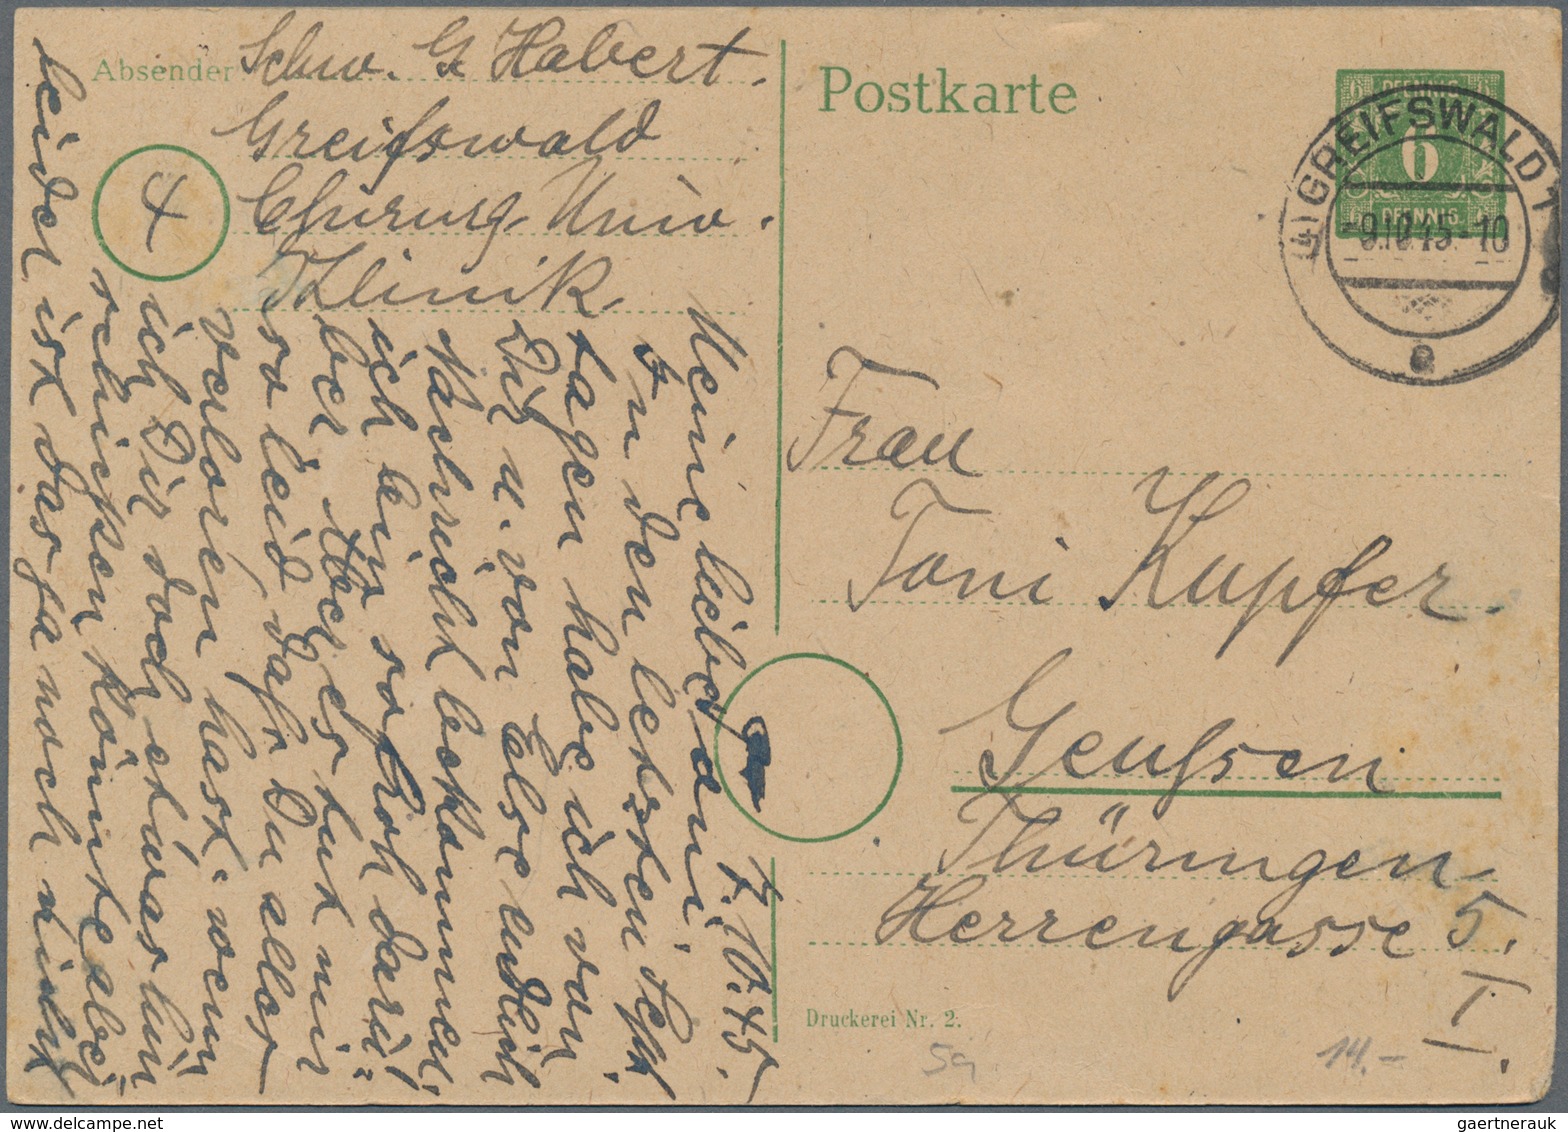 Absender Schw. G. Habert.
Greifswald
Chirurg. Univ.
Klinik.
4
Postkarte
6
(4) GREIFSWALD 1
-9.10.45-10
a
Frau
Toni Kupfer.
Thüringen
Herrengasse 5.
I.
Druckerei Nr. 2.
5a
14.-
7.10.45.
Meine liebe
In den letzten
tagen habe ich von
Dir u. von Else endlich
Nachricht bekommen,
ich bin so froh
Aber es tut mir
so leid daß Du alles
verloren hast. wenn
ich Dir doch etwas
schicken könnte aber
leider ist das ja noch nicht
gaertnerauk